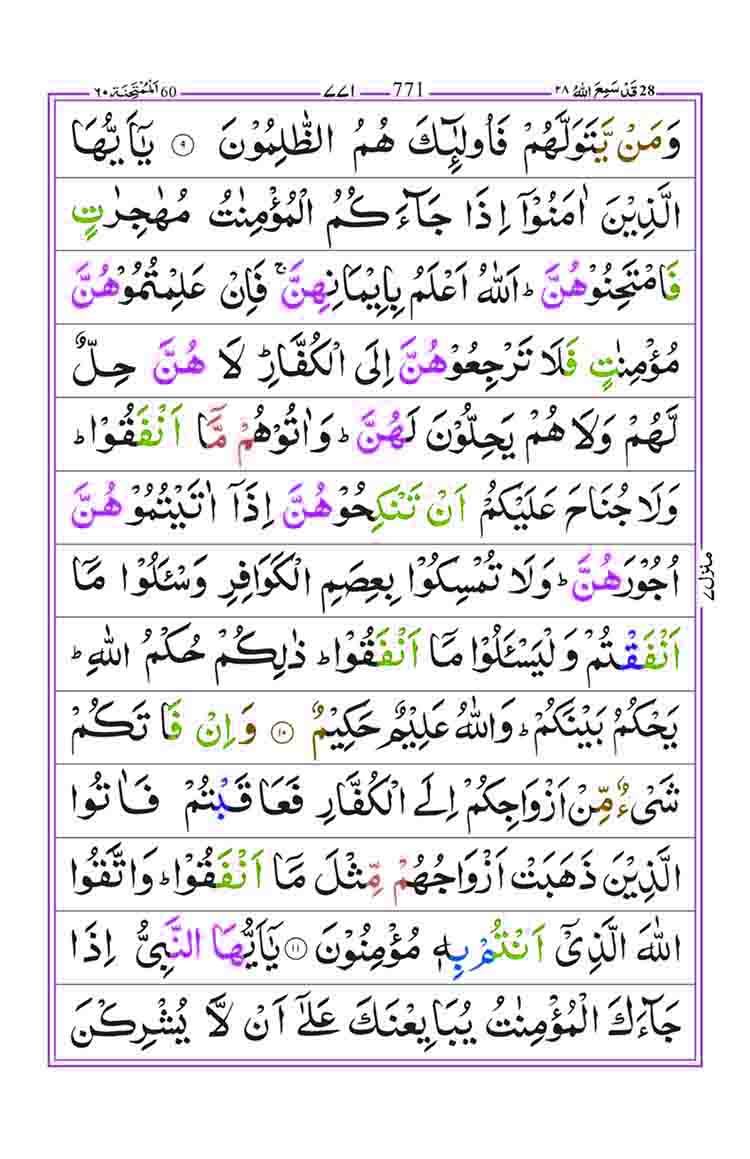 60 اَلْمُمْتَحِنَة ٦٠ ٧٧١ 771 ٢٨ قَدْ سَمِعَ اللّٰهُ 28
وَمَنْ يَّتَوَلَّهُمْ فَاُولٰٓئِكَ هُمُ الظّٰلِمُوْنَ ۝٩ يٰۤاَيُّهَا
الَّذِيْنَ اٰمَنُوْۤا اِذَا جَآءَكُمُ الْمُؤْمِنٰتُ مُهٰجِرٰتٍ
فَامْتَحِنُوْهُنَّ ؕ اَللّٰهُ اَعْلَمُ بِاِيْمَانِهِنَّ ۚ فَاِنْ عَلِمْتُمُوْهُنَّ
مُؤْمِنٰتٍ فَلَا تَرْجِعُوْهُنَّ اِلَى الْكُفَّارِ ؕ لَا هُنَّ حِلٌّ
لَّهُمْ وَلَا هُمْ يَحِلُّوْنَ لَهُنَّ ؕ وَاٰتُوْهُمْ مَّاۤ اَنْفَقُوْا ؕ
وَلَا جُنَاحَ عَلَيْكُمْ اَنْ تَنْكِحُوْهُنَّ اِذَاۤ اٰتَيْتُمُوْهُنَّ
اُجُوْرَهُنَّ ؕ وَلَا تُمْسِكُوْا بِعِصَمِ الْكَوَافِرِ وَسْـَٔلُوْا مَاۤ
اَنْفَقْتُمْ وَلْيَسْـَٔلُوْا مَاۤ اَنْفَقُوْا ؕ ذٰلِكُمْ حُكْمُ اللّٰهِ ؕ
يَحْكُمُ بَيْنَكُمْ ؕ وَاللّٰهُ عَلِيْمٌ حَكِيْمٌ ۝١٠ وَاِنْ فَاتَكُمْ
شَىْءٌ مِّنْ اَزْوَاجِكُمْ اِلَى الْكُفَّارِ فَعَاقَبْتُمْ فَاٰتُوا
الَّذِيْنَ ذَهَبَتْ اَزْوَاجُهُمْ مِّثْلَ مَاۤ اَنْفَقُوْا ؕ وَاتَّقُوا
اللّٰهَ الَّذِىْۤ اَنْتُمْ بِهٖ مُؤْمِنُوْنَ ۝١١ يٰۤاَيُّهَا النَّبِىُّ اِذَا
جَآءَكَ الْمُؤْمِنٰتُ يُبَايِعْنَكَ عَلٰۤى اَنْ لَّا يُشْرِكْنَ
منزل ٧